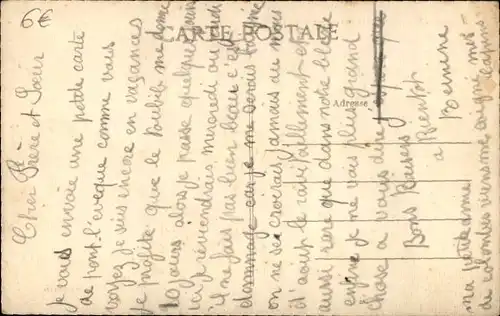 6€
CARTE POSTALE
Adresse
Cher Frère et Soeur
je vous envoie une petite carte
de pont-l'eveque comme vous
voyez je suis encore en vacances
je profite que le Bubib me donne
10 jours alors je passe quelques
ici je reviendrais mercredi ou
il ne fais pas bien beau c'est
dommage car je me serais
on ne se croirais jamais au mois
d'aout le ravitaillement est
aussi rare que dans notre bled
enfin je ne vois plus grand
chose a vous dire
Bons Baisers
a Bientot
Bernine
ma petite
de colombes viens soigné mes
lapins